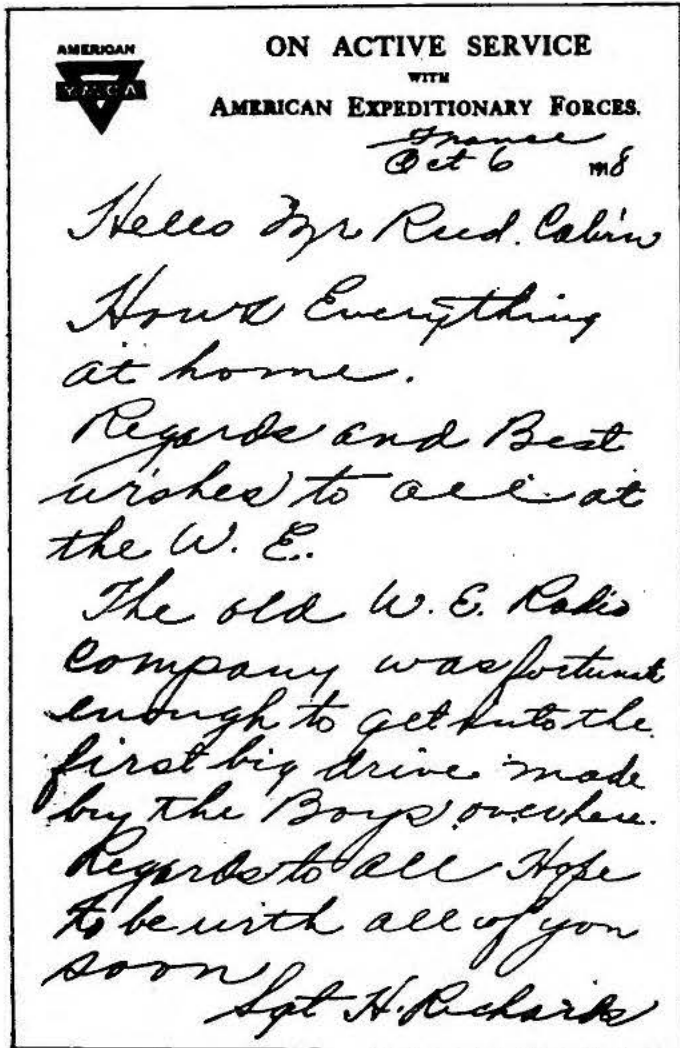 AMERICAN
Y.M.C.A
ON ACTIVE SERVICE
WITH
AMERICAN EXPEDITIONARY FORCES.
France
Oct 6 1918
Hello Mr Reed. Calvin
Hows Everything
at home.
Regards and Best
wishes to all at
the W. E.
The old W. E. Radio
company was fortunate
enough to get into the
first big drive made
by the Boys over here.
Regards to all Hope
to be with all of you
soon
Sgt H. Richards